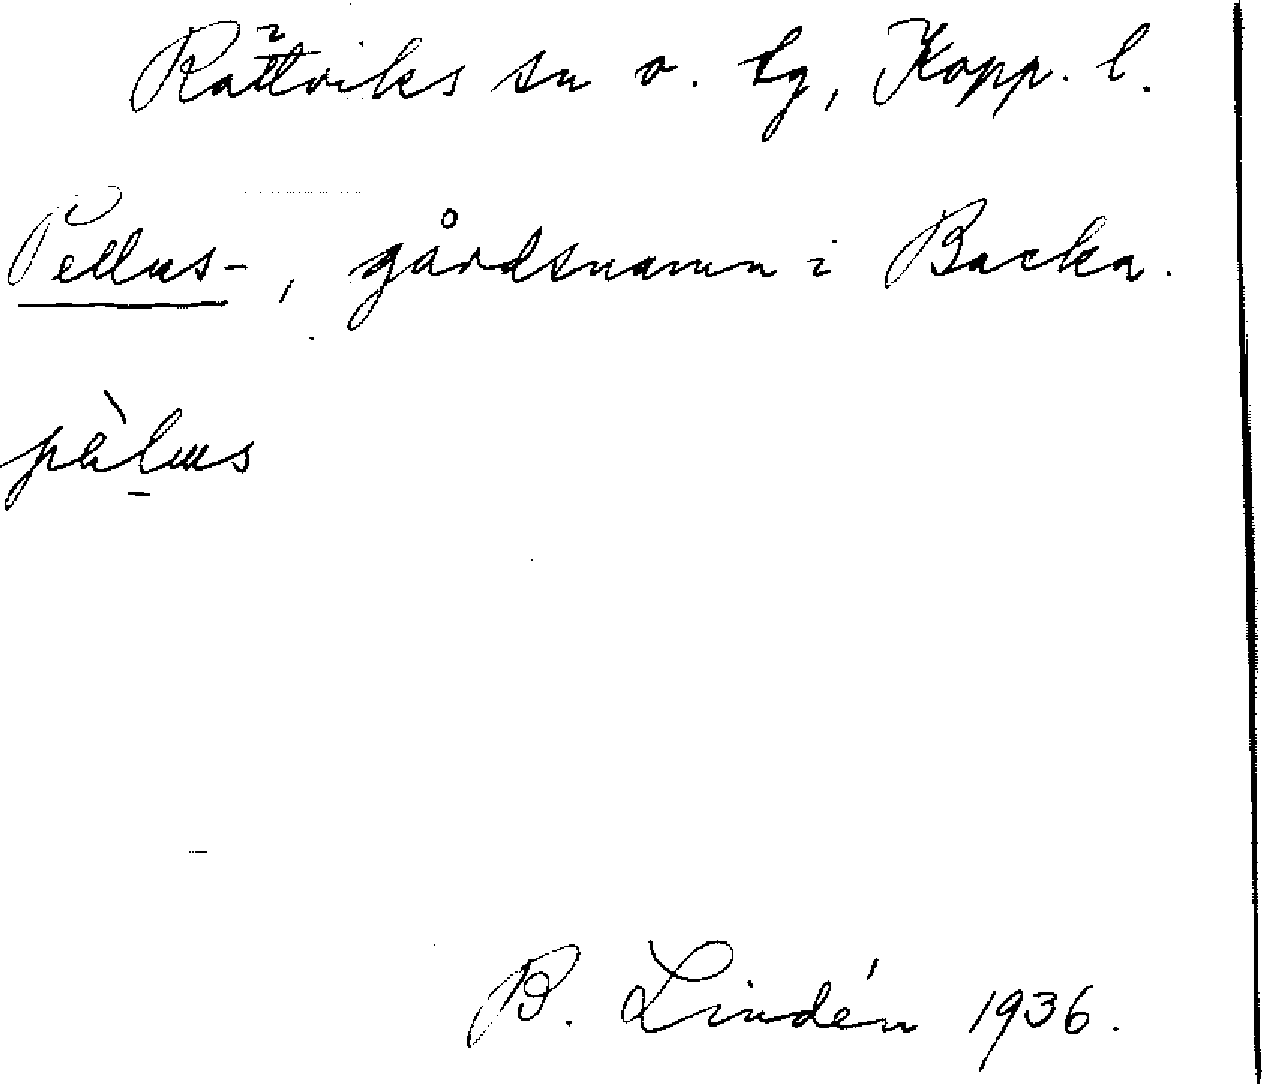 Rättviks sn o. tg, Kopp. l.
Pellus-, gårdsnamn i Backa.
pèlus
B. Lindén 1936.